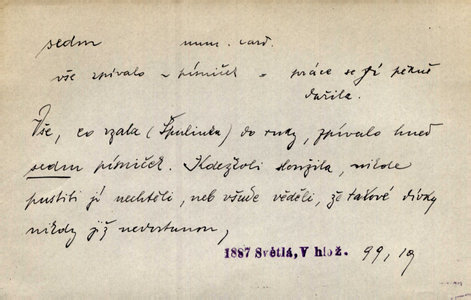 sedm num. card.
vše zpívalo ~ písniček ~ práce se jí pěkně
dařila.
Vše, co vzala (Špulinka) do ruky, zpívalo hned
sedm písniček. Kdežkoli sloužila, nikde
pustiti jí nechtěli, neb všude věděli, že takové divky
nikdy již nedostanou,
1887 Světlá, V hlož. 99, 19